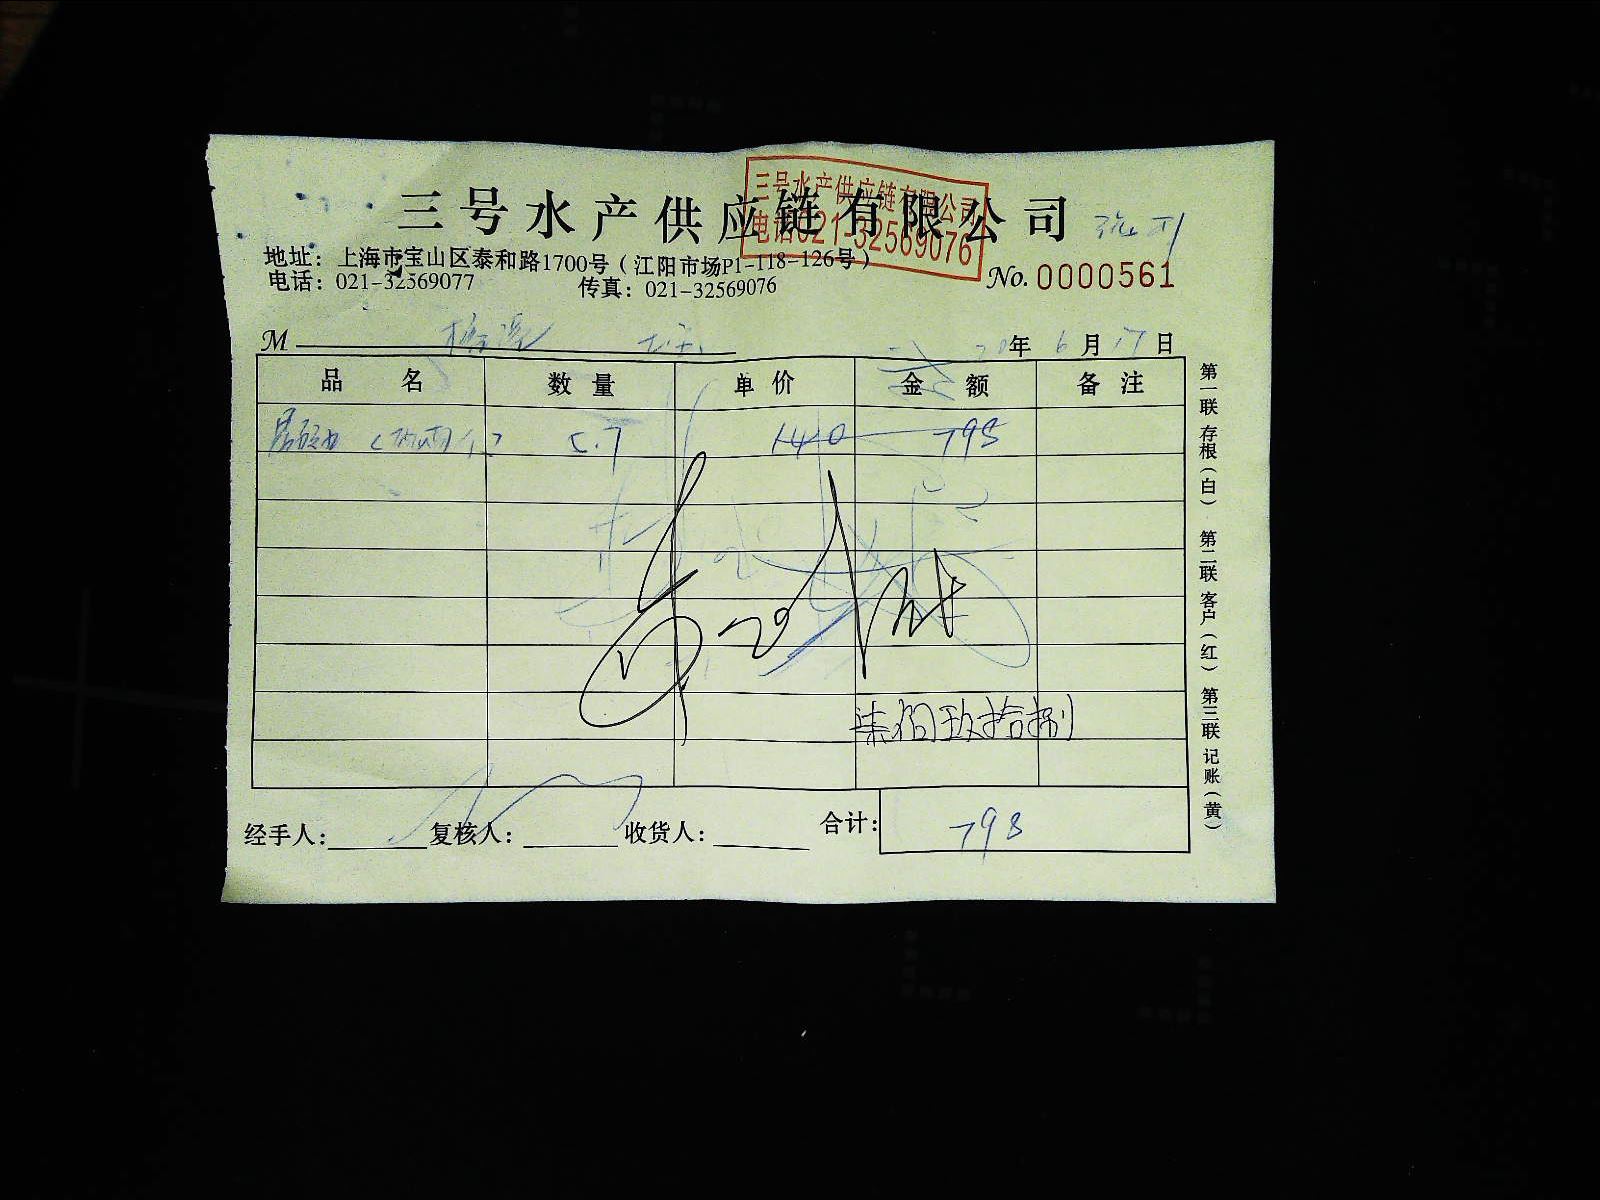 三号水产供应链有限公司
三号水产供应链有限公司
电话021-32569076
地址：上海市宝山区泰和路1700号（江阳市场P1-118-126号）
电话：021-32569077 传真：021-32569076
No. 0000561
M
20年 6月 17日
品 名 数 量 单 价 金 额 备 注
5.7 140 798
柒佰玖拾捌
经手人： 复核人： 收货人： 合计： 798
第一联 存根（白） 第二联 客户（红） 第三联 记账（黄）